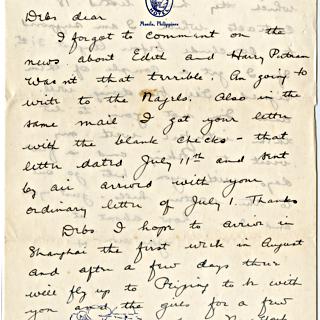 Manila, Philippines
Drbs dear
I forgot to comment on the
news about Edith and Harry Putnam
Wasn't that terrible. Am going to
write to the Nayels. Also in the
same mail I got your letter
with the blank checks - that
letter dated July 11th and sent
by air arrived with your
ordinary letter of July 1. Thanks
Drbs I hope to arrive in
Shanghai the first week in August
and after a few days there
we'll fly up to Peiping to be with
you and the girls for a few